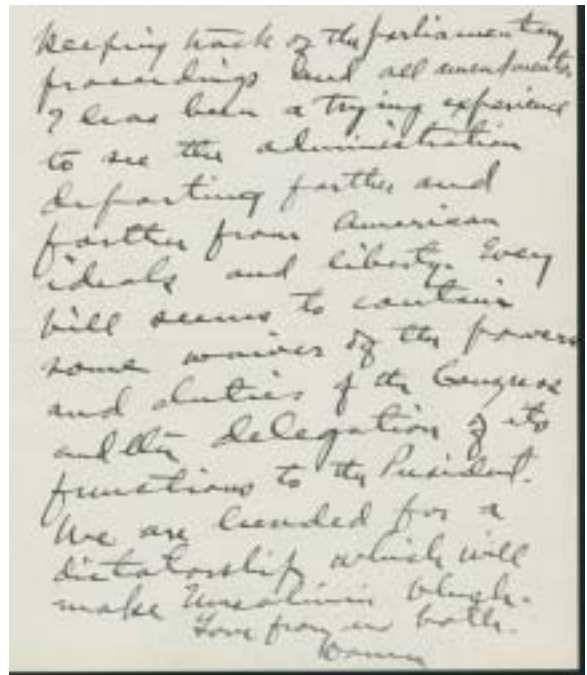 keeping track of the parliamentary
proceedings and all amendments
has been a trying experience
to see the administration
departing farther and
farther from American
ideals and liberty. Every
bill seems to contain
some waiver of the powers
and duties of the Congress
and the delegation of its
functions to the President.
We are headed for a
dictatorship which will
make Mussolini blush.
Love from us both.